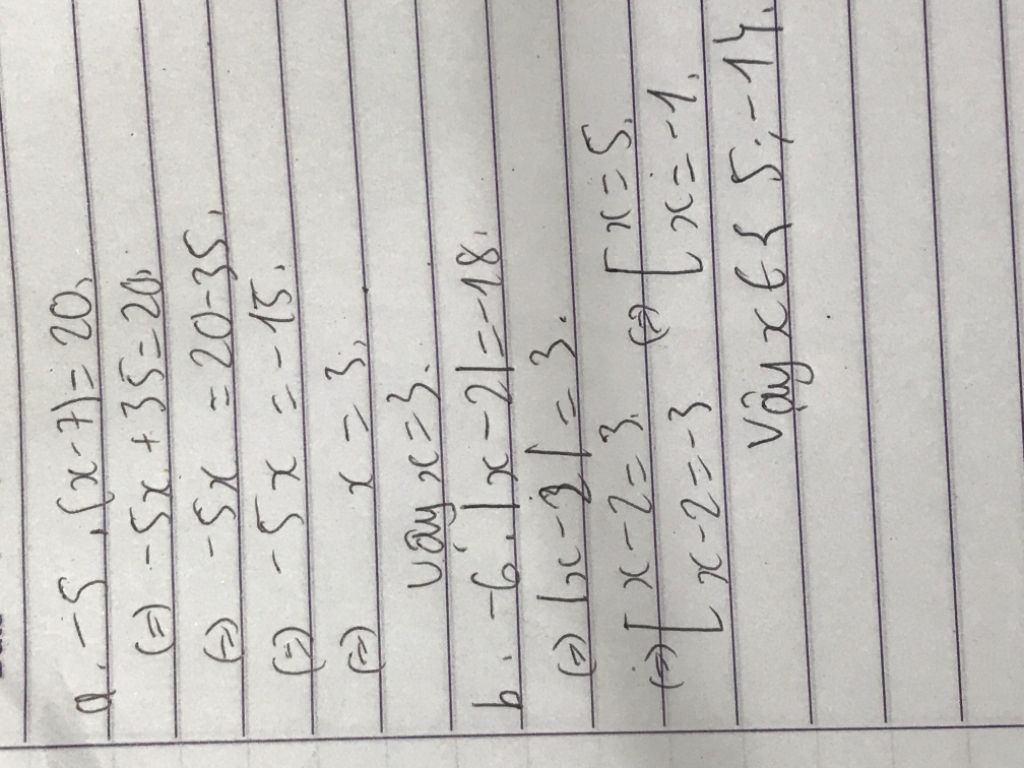 a. -5 . (x-7) = 20.
(=) -5x + 35 = 20.
(=) -5x = 20-35.
(=) -5x = -15.
(=) x = 3.
Vậy x = 3.
b. -6 . |x-2| = -18.
(=) |x-2| = 3.
(=) [ x-2 = 3. (=) [ x = 5.
x-2 = -3 x = -1.
Vậy x ∈ { 5 ; -1 }.